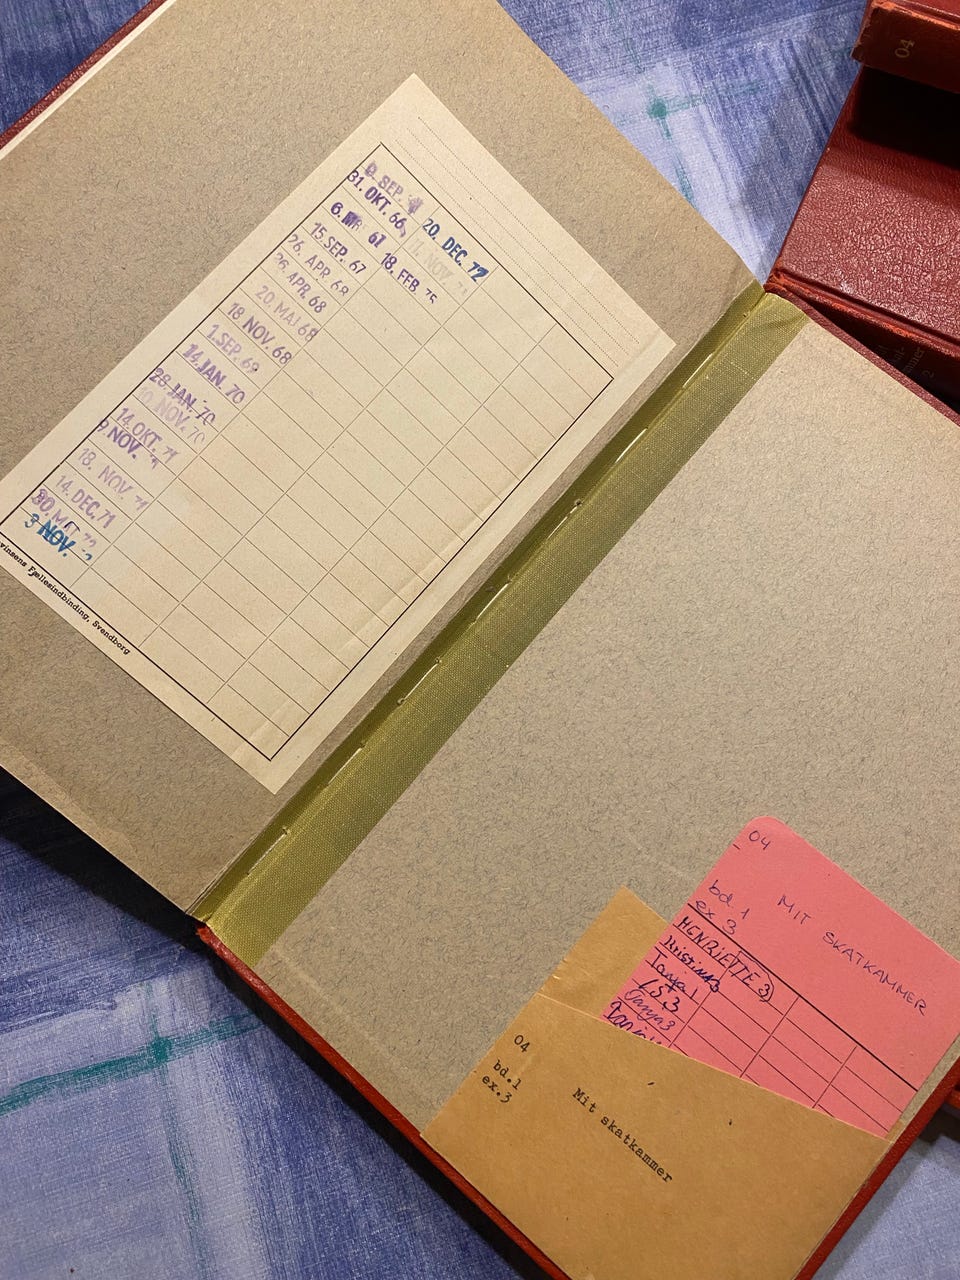 SEP.
31. OKT. 66
6. 67
15. SEP. 67
26. APR. 68
26 APR. 68
20. MAJ 68
18 NOV. 68
1. SEP. 69
14. JAN. 70
28. JAN. 70
10. NOV. 70
14. OKT. 71
9 NOV.
18. NOV. 71
14. DEC. 71
30. 72
3 NOV.
20. DEC. 72
11. NOV.
18. FEB. 75
Fællesindbinding, Svendborg
04
bd. 1
ex. 3
MIT SKATKAMMER
HENRIETTE 3
Kristina 3
Tanja 1
LS.3
Tanja 3
Tanja
04
bd.1
ex.3
Mit skatkammer
04
2